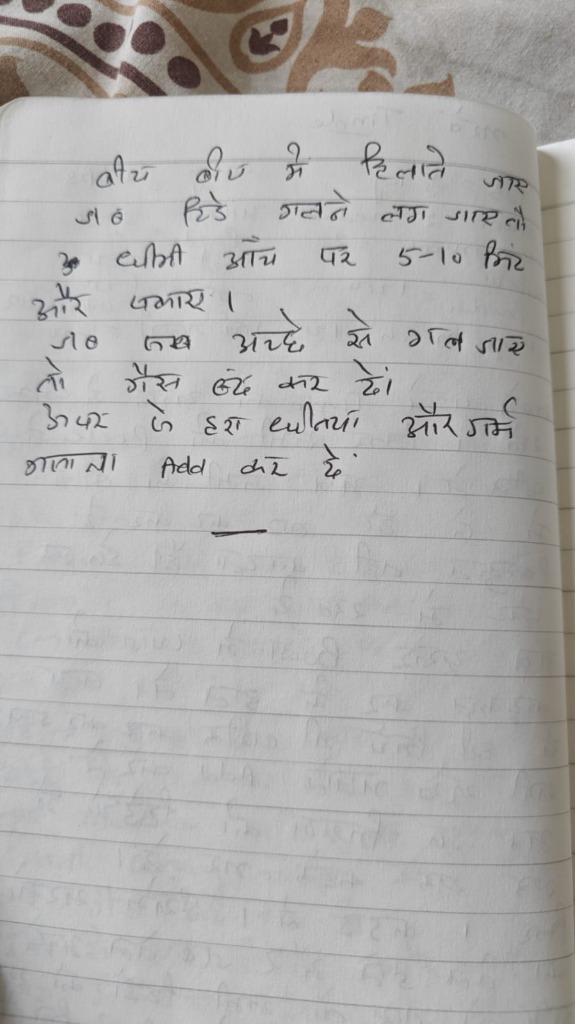 बीच बीच में हिलाते जाए
जब टिंडे गलने लग जाए तो
धीमी आँच पर 5-10 मिंट
और पकाए।
जब सब अच्छे से गल जाए
तो गैस बंद कर दें।
ऊपर से हरा धनिया और गर्म
मसाला Add कर दें